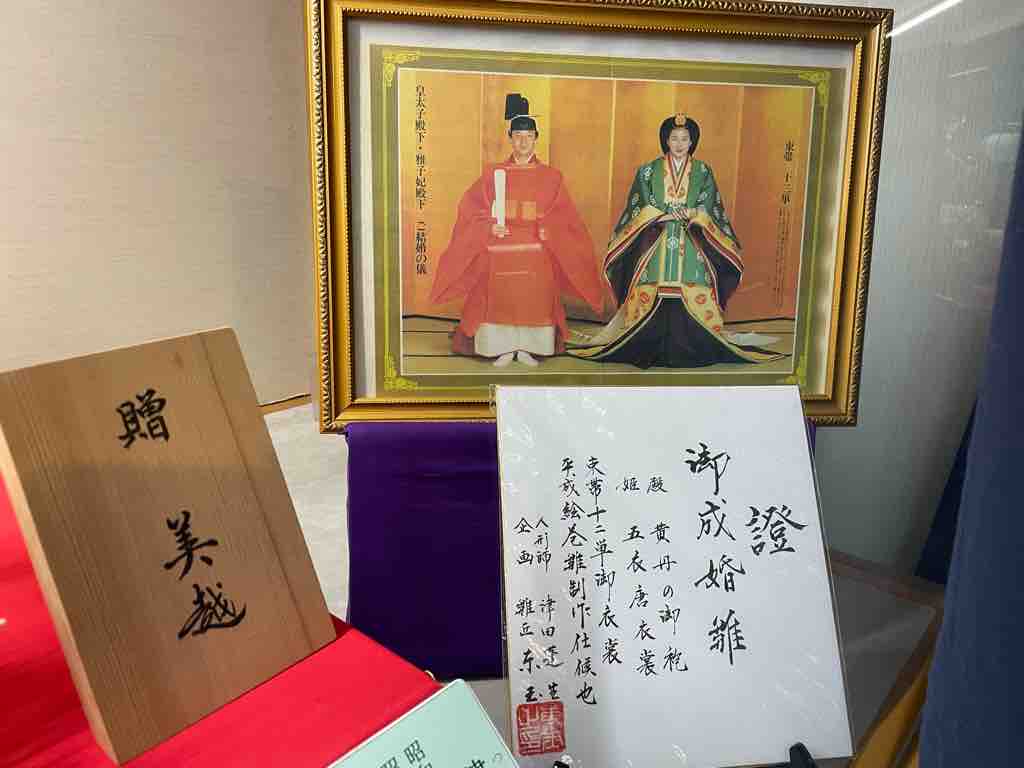 皇太子殿下・雅子妃殿下 ご結婚の儀
束帯 十二単
贈
美越
證
御成婚雛
殿 黄丹の御袍
姫 五衣唐衣裳
束帯十二単御衣裳
平成絵巻雛制作仕候也
人形師 津田蓬生
企画 雛匠 东玉
昭
昭